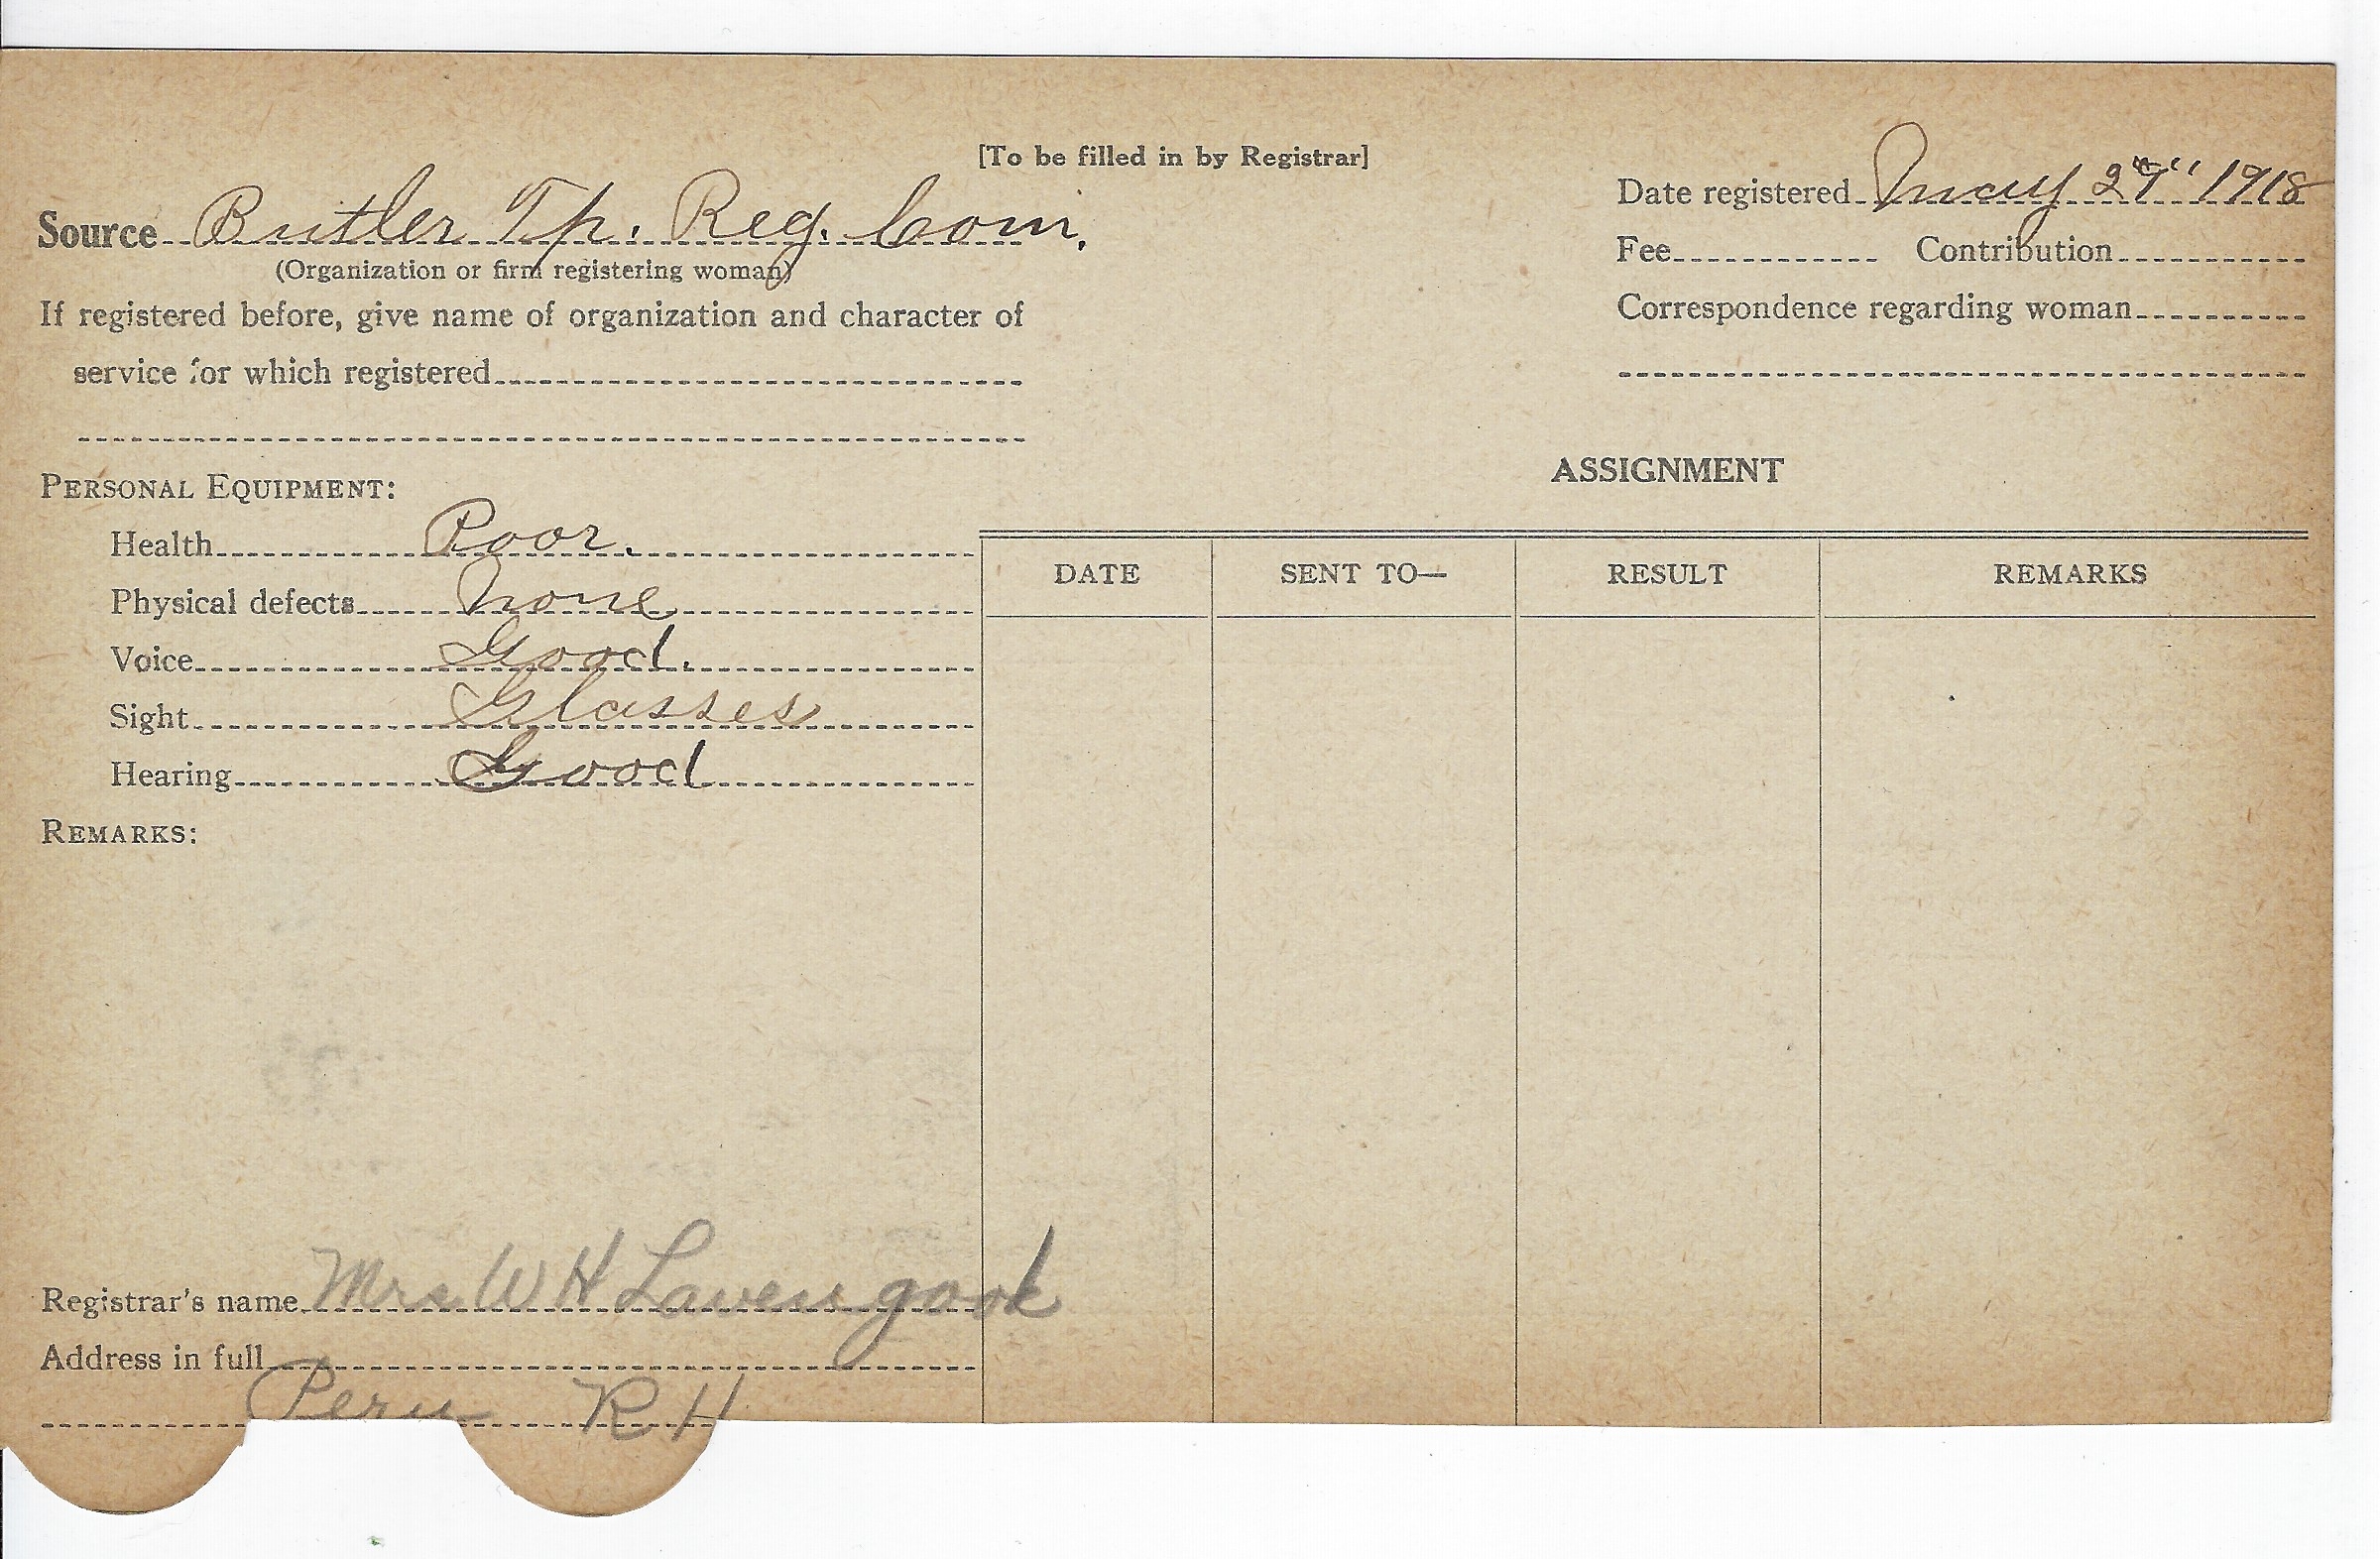 [To be filled in by Registrar]
Source Butler Tp. Reg. Com.
(Organization or firm registering woman)
If registered before, give name of organization and character of
service for which registered
Date registered May 1918
Fee Contribution
Correspondence regarding woman
PERSONAL EQUIPMENT:
Health Poor.
Physical defects None
Voice Good.
Sight Glasses
Hearing Good
REMARKS:
ASSIGNMENT
DATE SENT TO— RESULT REMARKS
Registrar's name Mrs W H Lavengood
Address in full
Peru R